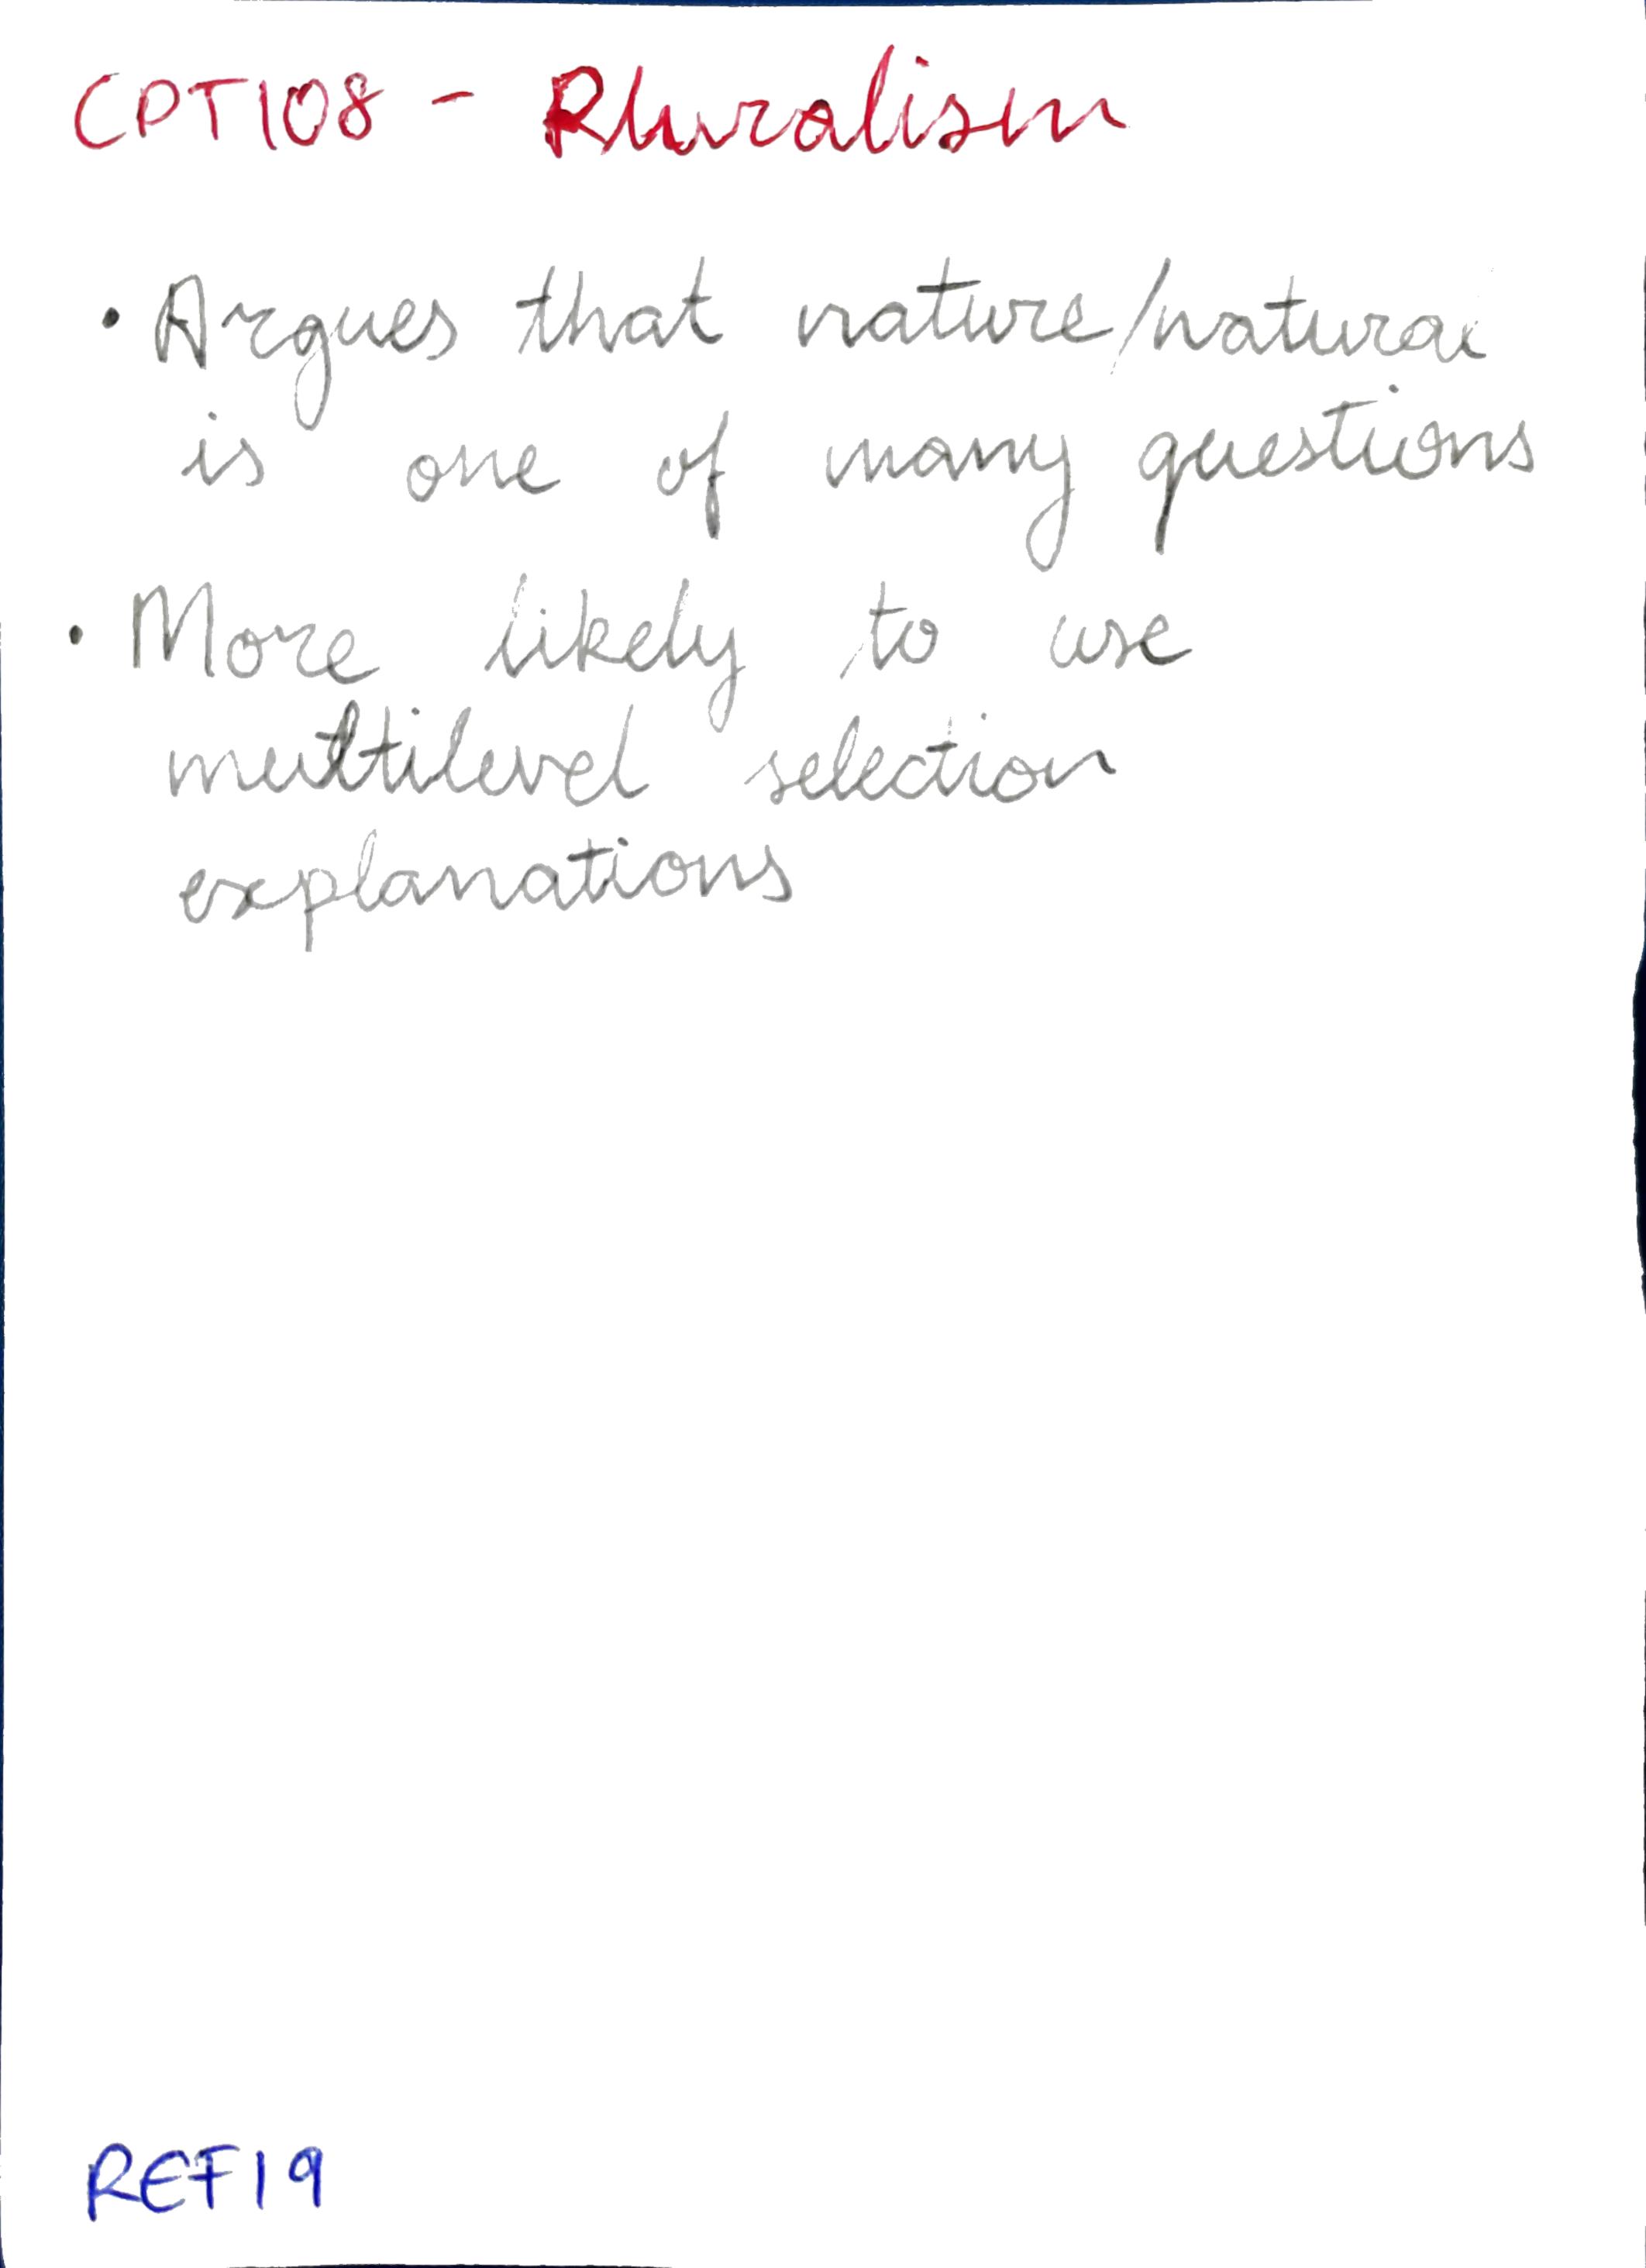 CPT108 - Pluralism
• Argues that nature/natural
is one of many questions
• More likely to use
multilevel selection
explanations
REF19